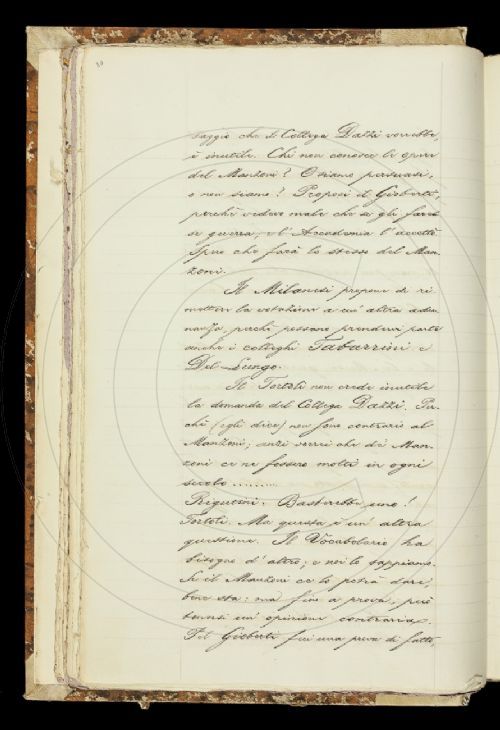 30
saggio che il Collega Dazzi vorrebbe,
è inutile. Chi non conosce le opere
del Manzoni? O siamo persuasi,
o non siamo? Proposi il Gioberti,
perchè vedevo male che se gli faces-
se guerra, e l'Accademia l'accettò.
Spero che farà lo stesso del Man-
zoni.
Il Milanesi propone di ri-
mettere la votazione a un' altra adu-
nanza, perchè possano prendervi parte
anche i colleghi Tabarrini e
Del Lungo.
Il Tortoli non crede inutile
la domanda del Collega Dazzi. Per-
chè (egli dice) non sono contrario al
Manzoni; anzi vorrei che de' Man-
zoni ce ne fossero molti in ogni
secolo.........
Rigutini. Basterebbe uno!
Tortoli. Ma questa è un' altra
questione. Il Vocabolario ha
bisogno d' altro; e noi lo sappiamo.
Se il Manzoni ce lo potrà dare,
bene sta: ma fino a prova, però
un' opinione contraria.
Pel Gioberti fu una prova di fatto,